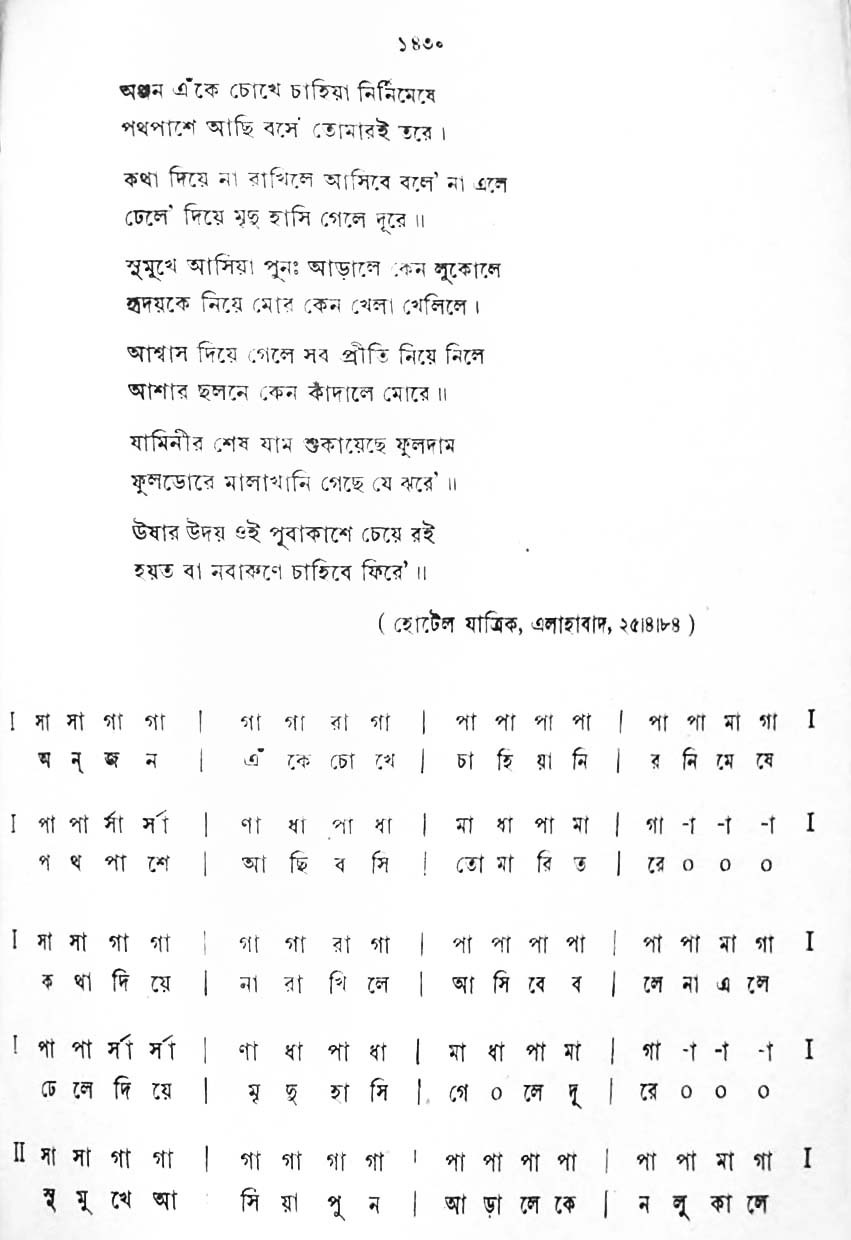 ১৪৩০
অঞ্জন এঁকে চোখে চাহিয়া নির্নিমেষে
পথপাশে আছি বসে' তোমারই তরে ।
কথা দিয়ে না রাখিলে আসিবে বলে' না এলে
ঢেলে' দিয়ে মৃদু হাসি গেলে দূরে ॥
সুমুখে আসিয়া পুনঃ আড়ালে কেন লুকোলে
হৃদয়কে নিয়ে মোর কেন খেলা খেলিলে ।
আশ্বাস দিয়ে গেলে সব প্রীতি নিয়ে নিলে
আশার ছলনে কেন কাঁদালে মোরে ॥
যামিনীর শেষ যাম শুকায়েছে ফুলদাম
ফুলডোরে মালাখানি গেছে যে ঝরে' ॥
ঊষার উদয় ওই পূবাকাশে চেয়ে রই
হয়ত বা নবারুণে চাহিবে ফিরে' ॥
( হোটেল যাত্রিক, এলাহাবাদ, ২৫।৪।৮৪ )
I সা সা গা গা | গা গা রা গা | পা পা পা পা | পা পা মা গা I
অ ন্ জ ন | এঁ কে চো খে | চা হি য়া নি | র নি মে ষে
I পা পা র্সা র্সা | ণা ধা পা ধা | মা ধা পা মা | গা -া -া -া I
প থ পা শে | আ ছি ব সি | তো মা রি ত | রে ০ ০ ০
I সা সা গা গা | গা গা রা গা | পা পা পা পা | পা পা মা গা I
ক থা দি য়ে | না রা খি লে | আ সি বে ব | লে না এ লে
I পা পা র্সা র্সা | ণা ধা পা ধা | মা ধা পা মা | গা -া -া -া I
ঢে লে দি য়ে | মৃ দু হা সি | গে ০ লে দূ | রে ০ ০ ০
II সা সা গা গা | গা গা গা গা | পা পা পা পা | পা পা মা গা I
সু মু খে আ সি য়া পু ন | আ ড়া লে কে | ন লু কা লে